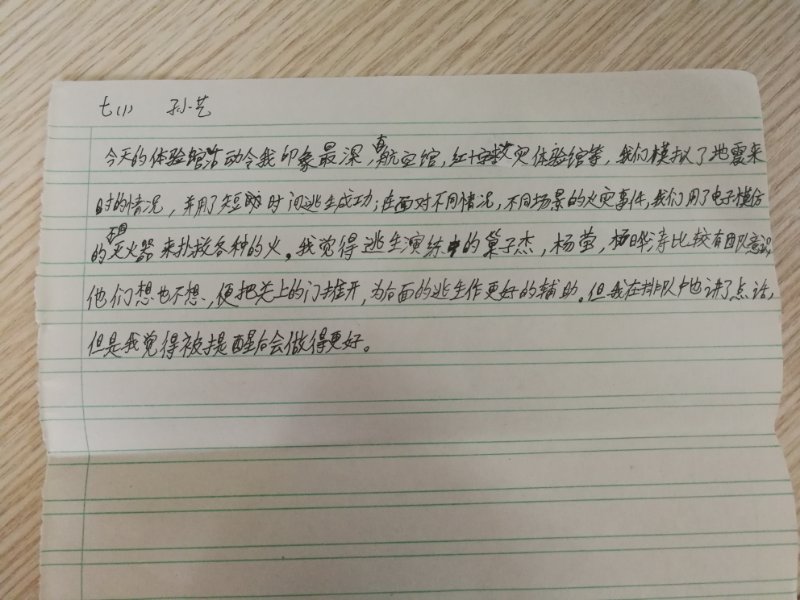 七(1) 孙艺
今天的体验馆活动令我印象最深,有航空馆,红十字救灾体验馆等,我们模拟了地震来
时的情况,并用了短的时间逃生成功;在面对不同情况,不同场景的火灾事件,我们用了电子模仿
的灭火器来扑救各种的火。我觉得逃生演练中的子杰,杨萤,杨涛比较有团队意识,
他们想也不想,便把关上的门推开,为后面的逃生作更好的辅助。但我在排队中也讲了点话,
但是我觉得被提醒后会做得更好。